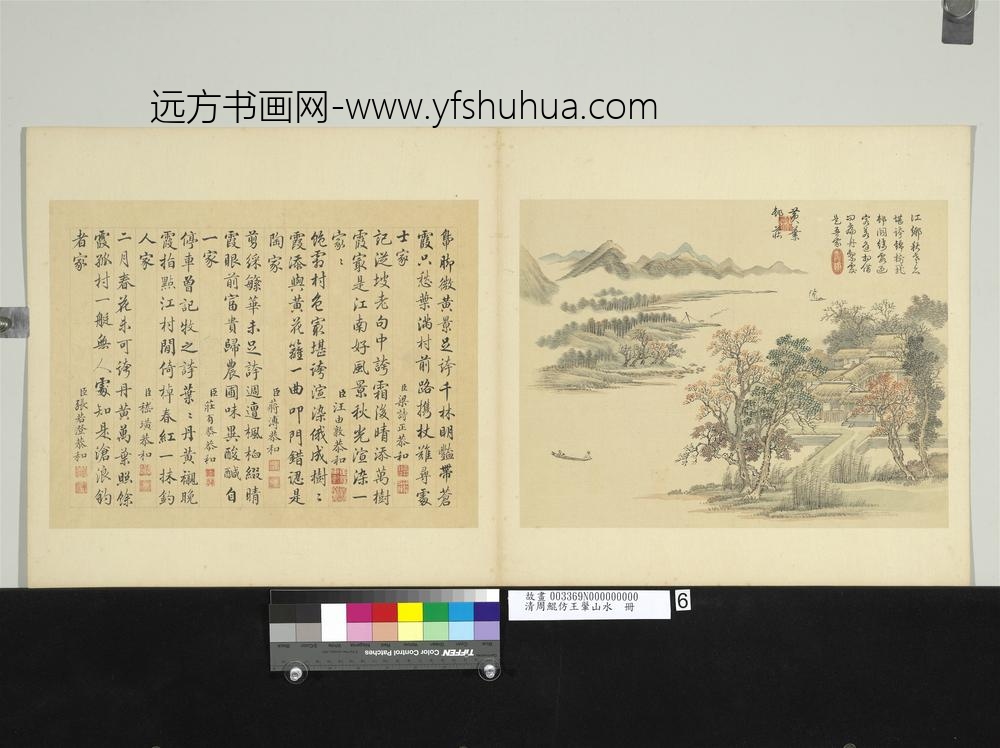 远方书画网-www.yfshuhua.com
黃葉
邨莊
江鄉秋
堪誇錦樹
是吾家
鳧腳微黃景足誇千林明豔帶蒼
霞只愁葉滿村前路攜杖難尋處
士家 臣梁詩正恭和
記從坡老句中誇霜後晴添萬樹
霞最是江南好風景秋光渲染一
家〻 臣汪由敦恭和
絕霜村色最堪誇渲染俄成樹〻
霞添與黃花籬一曲叩門錯認是
陶家 臣蔣溥恭和
剪綵繁華未足誇週遭楓柏綴晴
霞眼前富貴歸農圃味異酸鹹自
一家 臣莊有恭恭和
停車曾記牧之誇葉〻丹黃襯晚
霞指點江村閒倚棹春紅一抹釣
人家 臣嵇璜恭和
二月春花未可誇丹黃萬葉照餘
霞孤村一艇無人處知是滄浪釣
者家 臣張若澄恭和
故畫 003369N000000000
清周鯤仿王翬山水 冊
6
TIFFEN Color Control Patches